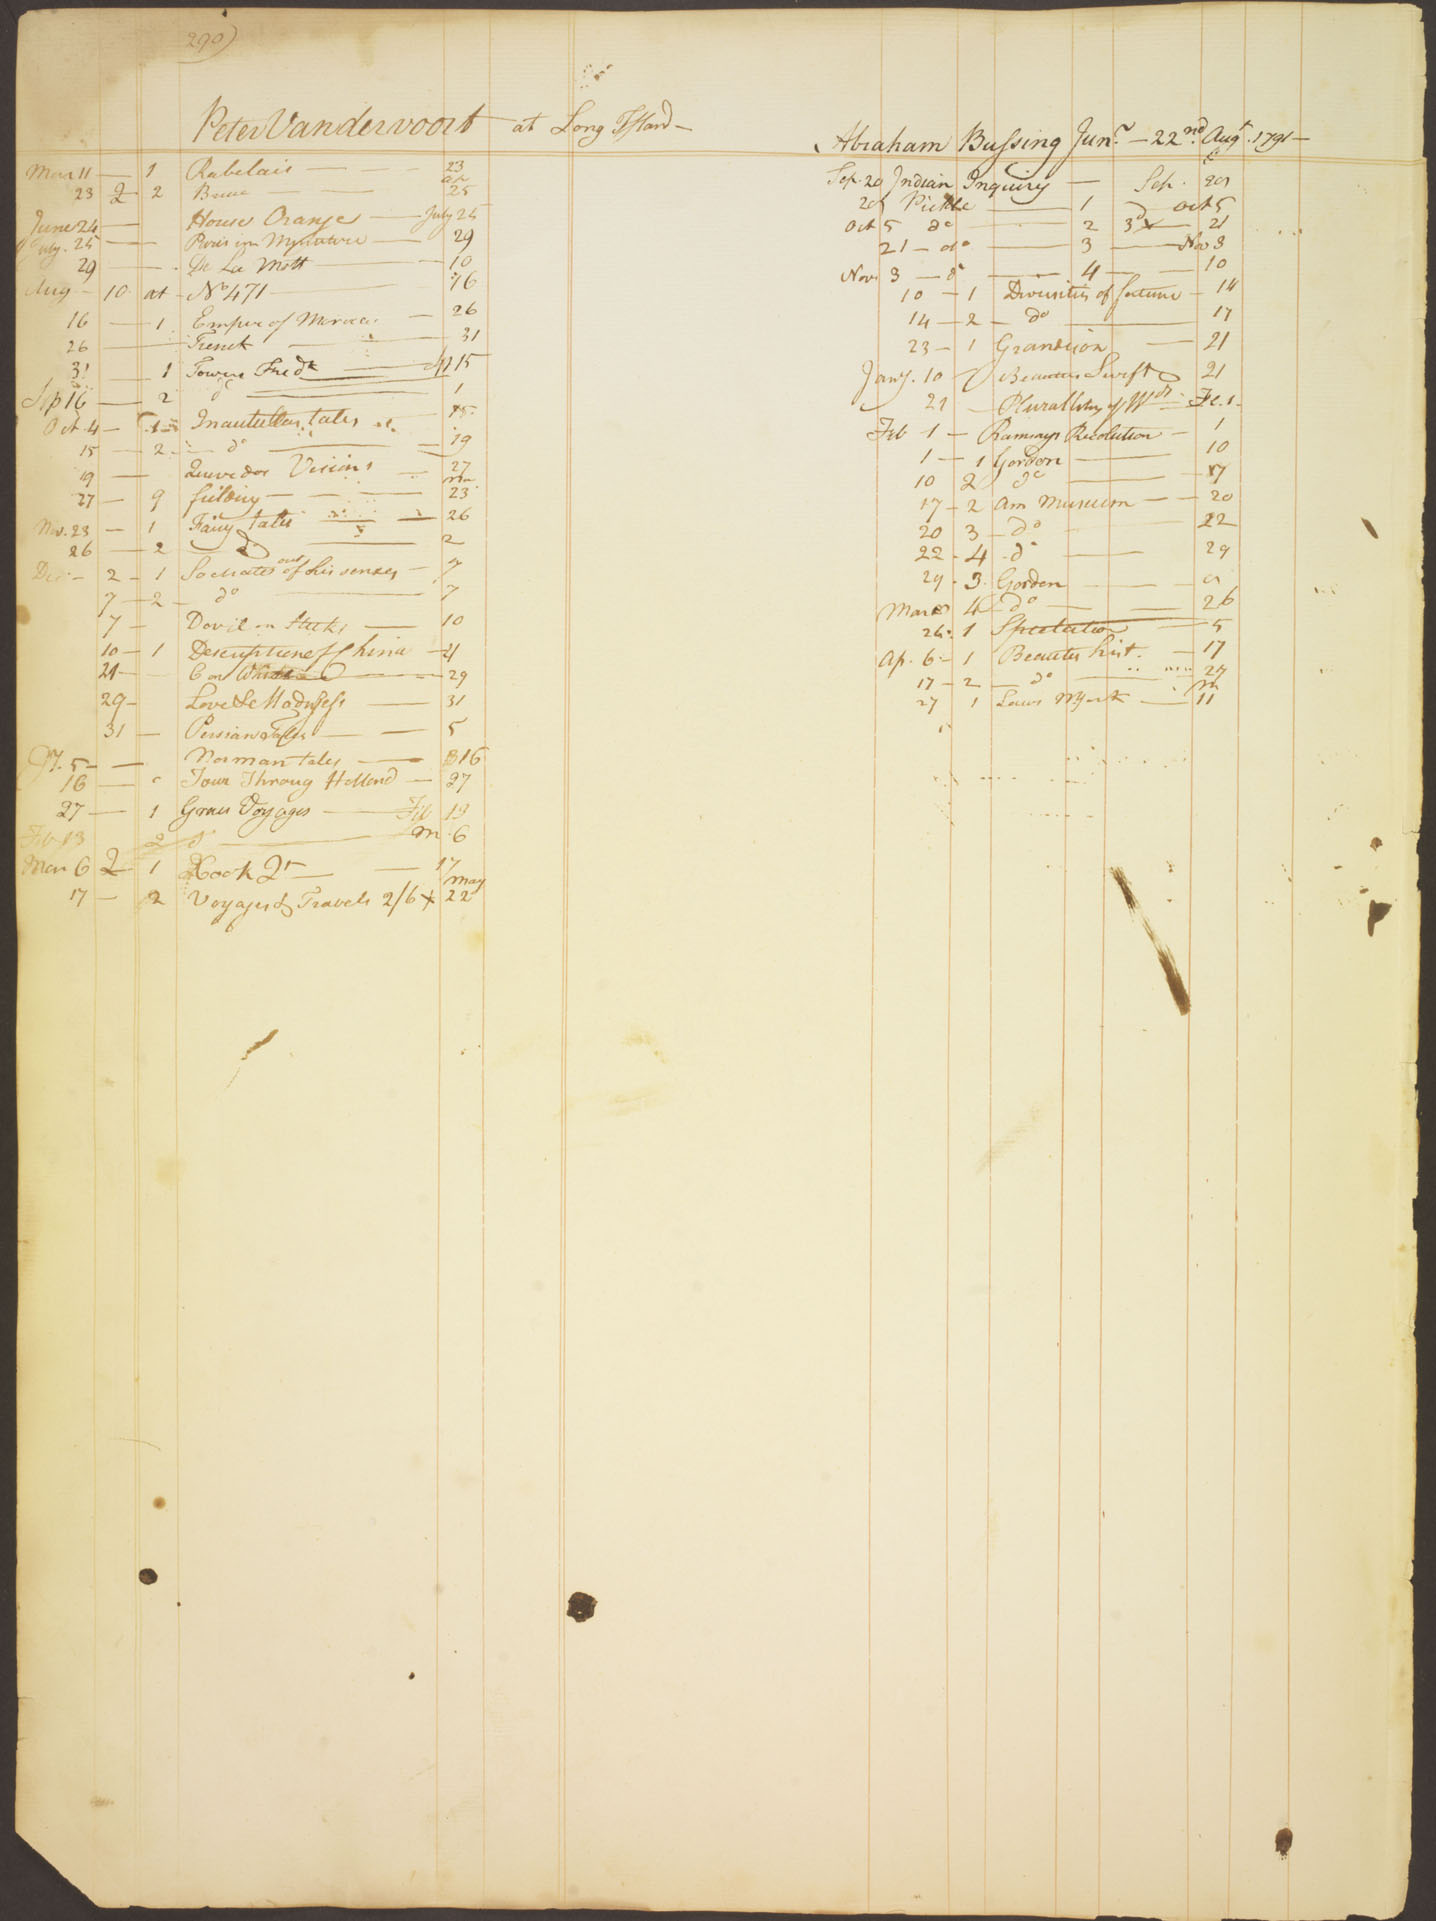 290)
Peter Vandervoort at Long Island —
Mar 11 — 1 Rabelais — 23
23 2 2 Bruce — ap 25
June 24 — House Orange — July 25
July 25 — Paris in Mynature — 29
29 — De La Mott — 10
Aug — 10 at — No 471 — 16
16 — 1 Empire of Morocco — 26
26 — Trenck — 31
31 — 1 Towers Fredk — 15
Sep 16 — 2 do — 1
Oct 4 — 1 tales — 15
15 — 2 — do — 19
19 — Quevedos Visions — 27
27 — 9 fielding — Nov 23
Nov. 23 — 1 Fairy tales — 26
26 — 2 do — 2
Dec — 2 — 1 Socrates out of his senses — 7
7 — 2 — do — 7
7 — Devil on Sticks — 10
10 — 1 Description of China — 21
21 — — 29
29 — Love & Madness — 31
31 — Persian Tales — 5
5 — Norman tales — 16
16 — Tour Throug Holland — 27
27 — 1 Voyages — Feb 13
Feb 13 2 do — M 6
Mar 6 2 1 — 17
17 — 2 Voyages & Travels 2/6 x May 22
Abraham Bussing Junr — 22nd Augt 1791 —
Sep. 20 Indian Inquiry — Sep. 20
20 Pickle — 1 — Oct 5
Oct 5 do — 2 3d x 21
21 — do — 3 — Nov 3
Nov 3 — do — 4 — 10
10 — 1 Diversities of fortune — 14
14 — 2 — do — 17
23 — 1 Grandison — 21
Jany. 10 — Beauties Swift 21
21 — Plurallity of Wds — Fe. 1
Feb 1 — Ramsays Revolution — 1
1 — 1 Gordon — 10
10 2 do — 17
17 — 2 Am Museum — 20
20 3 — do — 22
22 — 4 — do — 29
29 — 3 Gordon —
Mar 4 do — 26
26 — 1 — 5
Ap. 6 — 1 Beauties hist. — 17
17 — 2 — do — 27
27 1 Laws N York — M 11